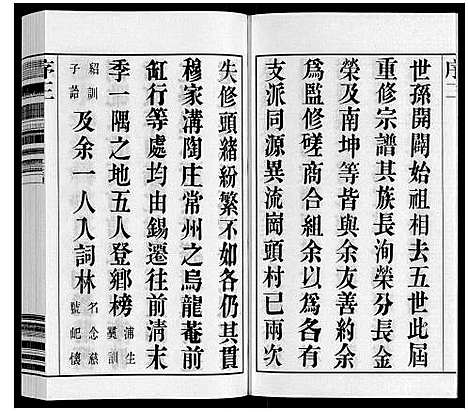 序二
世孫開闢始祖相去五世此届
重修宗譜其族長洵榮分長金
榮及南坤等皆與余友善約余
為監修磋商合組余以為各有
支派同源異流崗頭村已兩次
失修頭緒紛繁不如各仍其貫
穆家溝陶庄常州之烏龍菴前
缸行等處均由錫遷往前清末
季一隅之地五人登鄉榜 浦生 奠訓
紹訓 子詒 及余一人入詞林 名念慈 號屺懷
序三